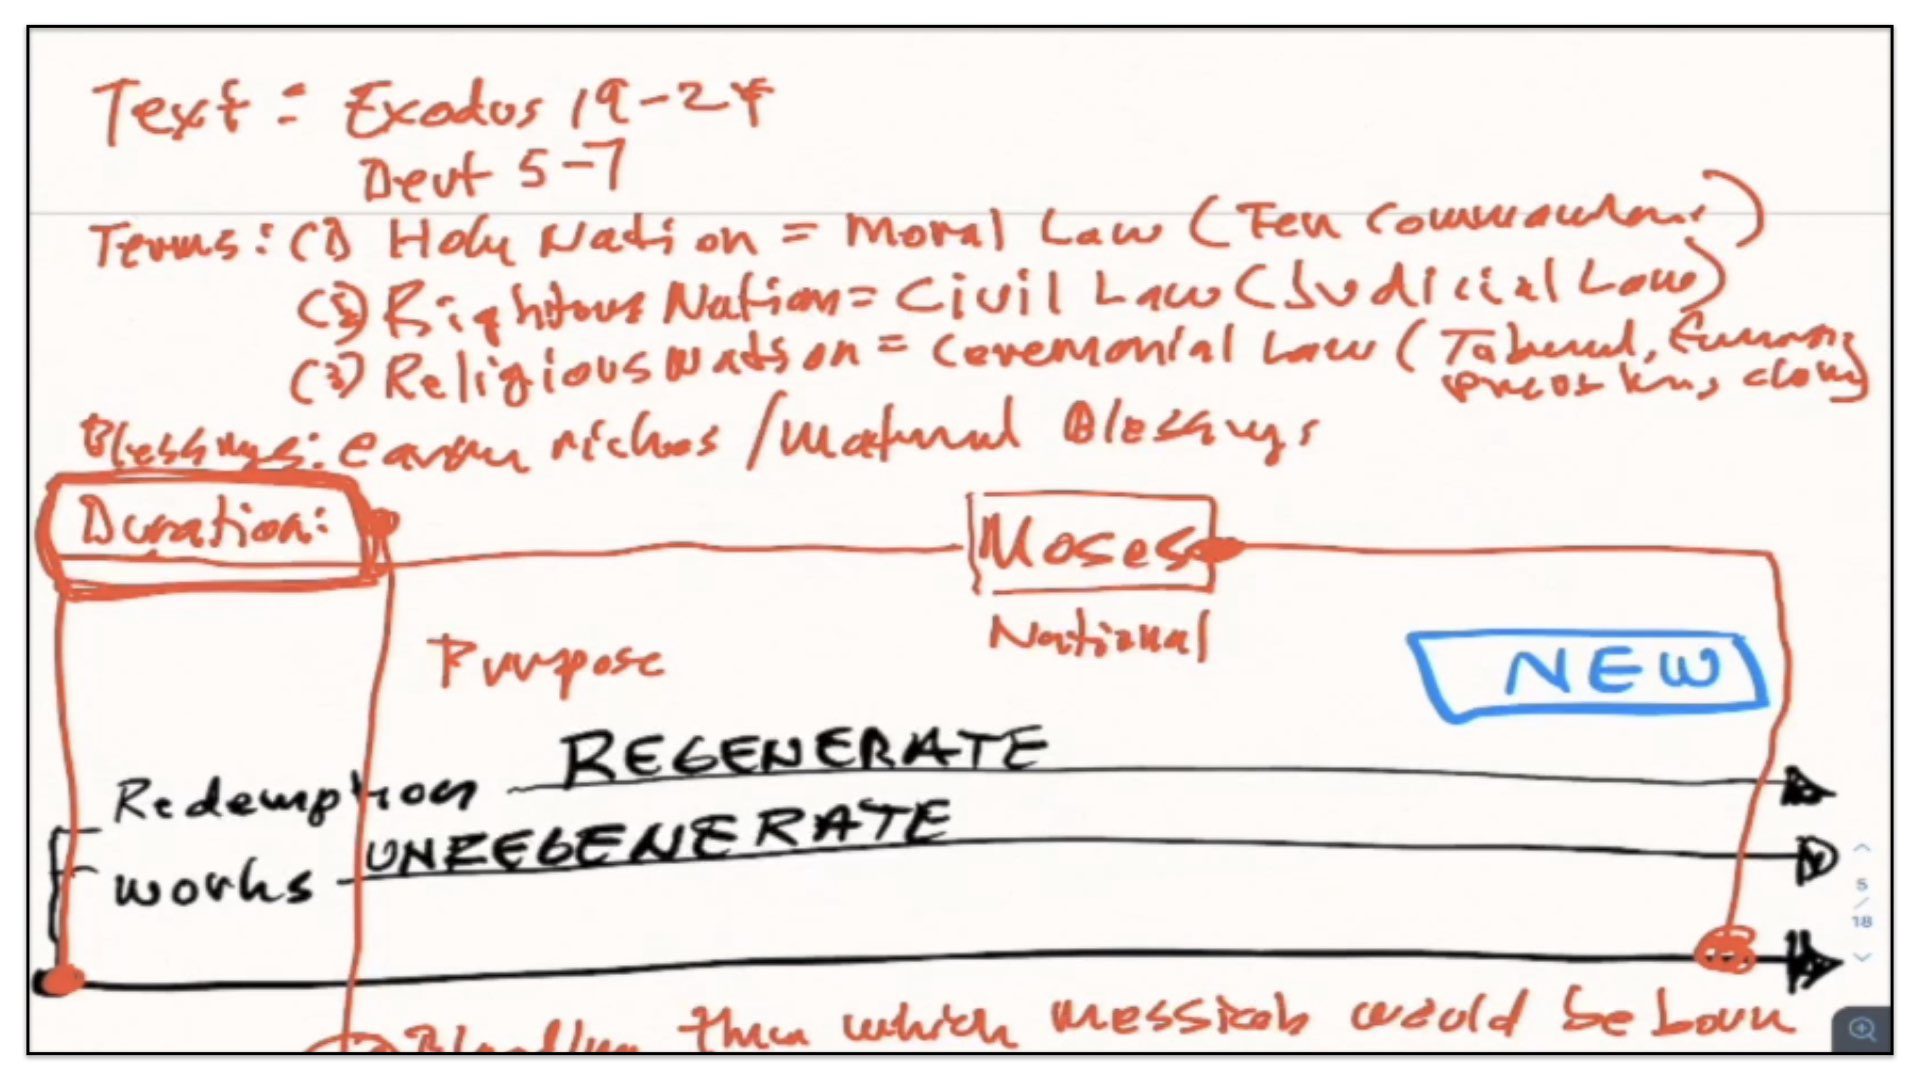 Text: Exodus 19-24
Deut 5-7
Terms: (1) Holy Nation = Moral Law (Ten
(2) Rightous Nation = Civil Law (Judicial Law)
(3) Religious Nation = Ceremonial Law (
Blessings: riches / Material Blessings
Duration:
Moses
National
Purpose
NEW
REGENERATE
Redemption
UNREGENERATE
works
5
/
18
Bloodline thru which messiah would be born